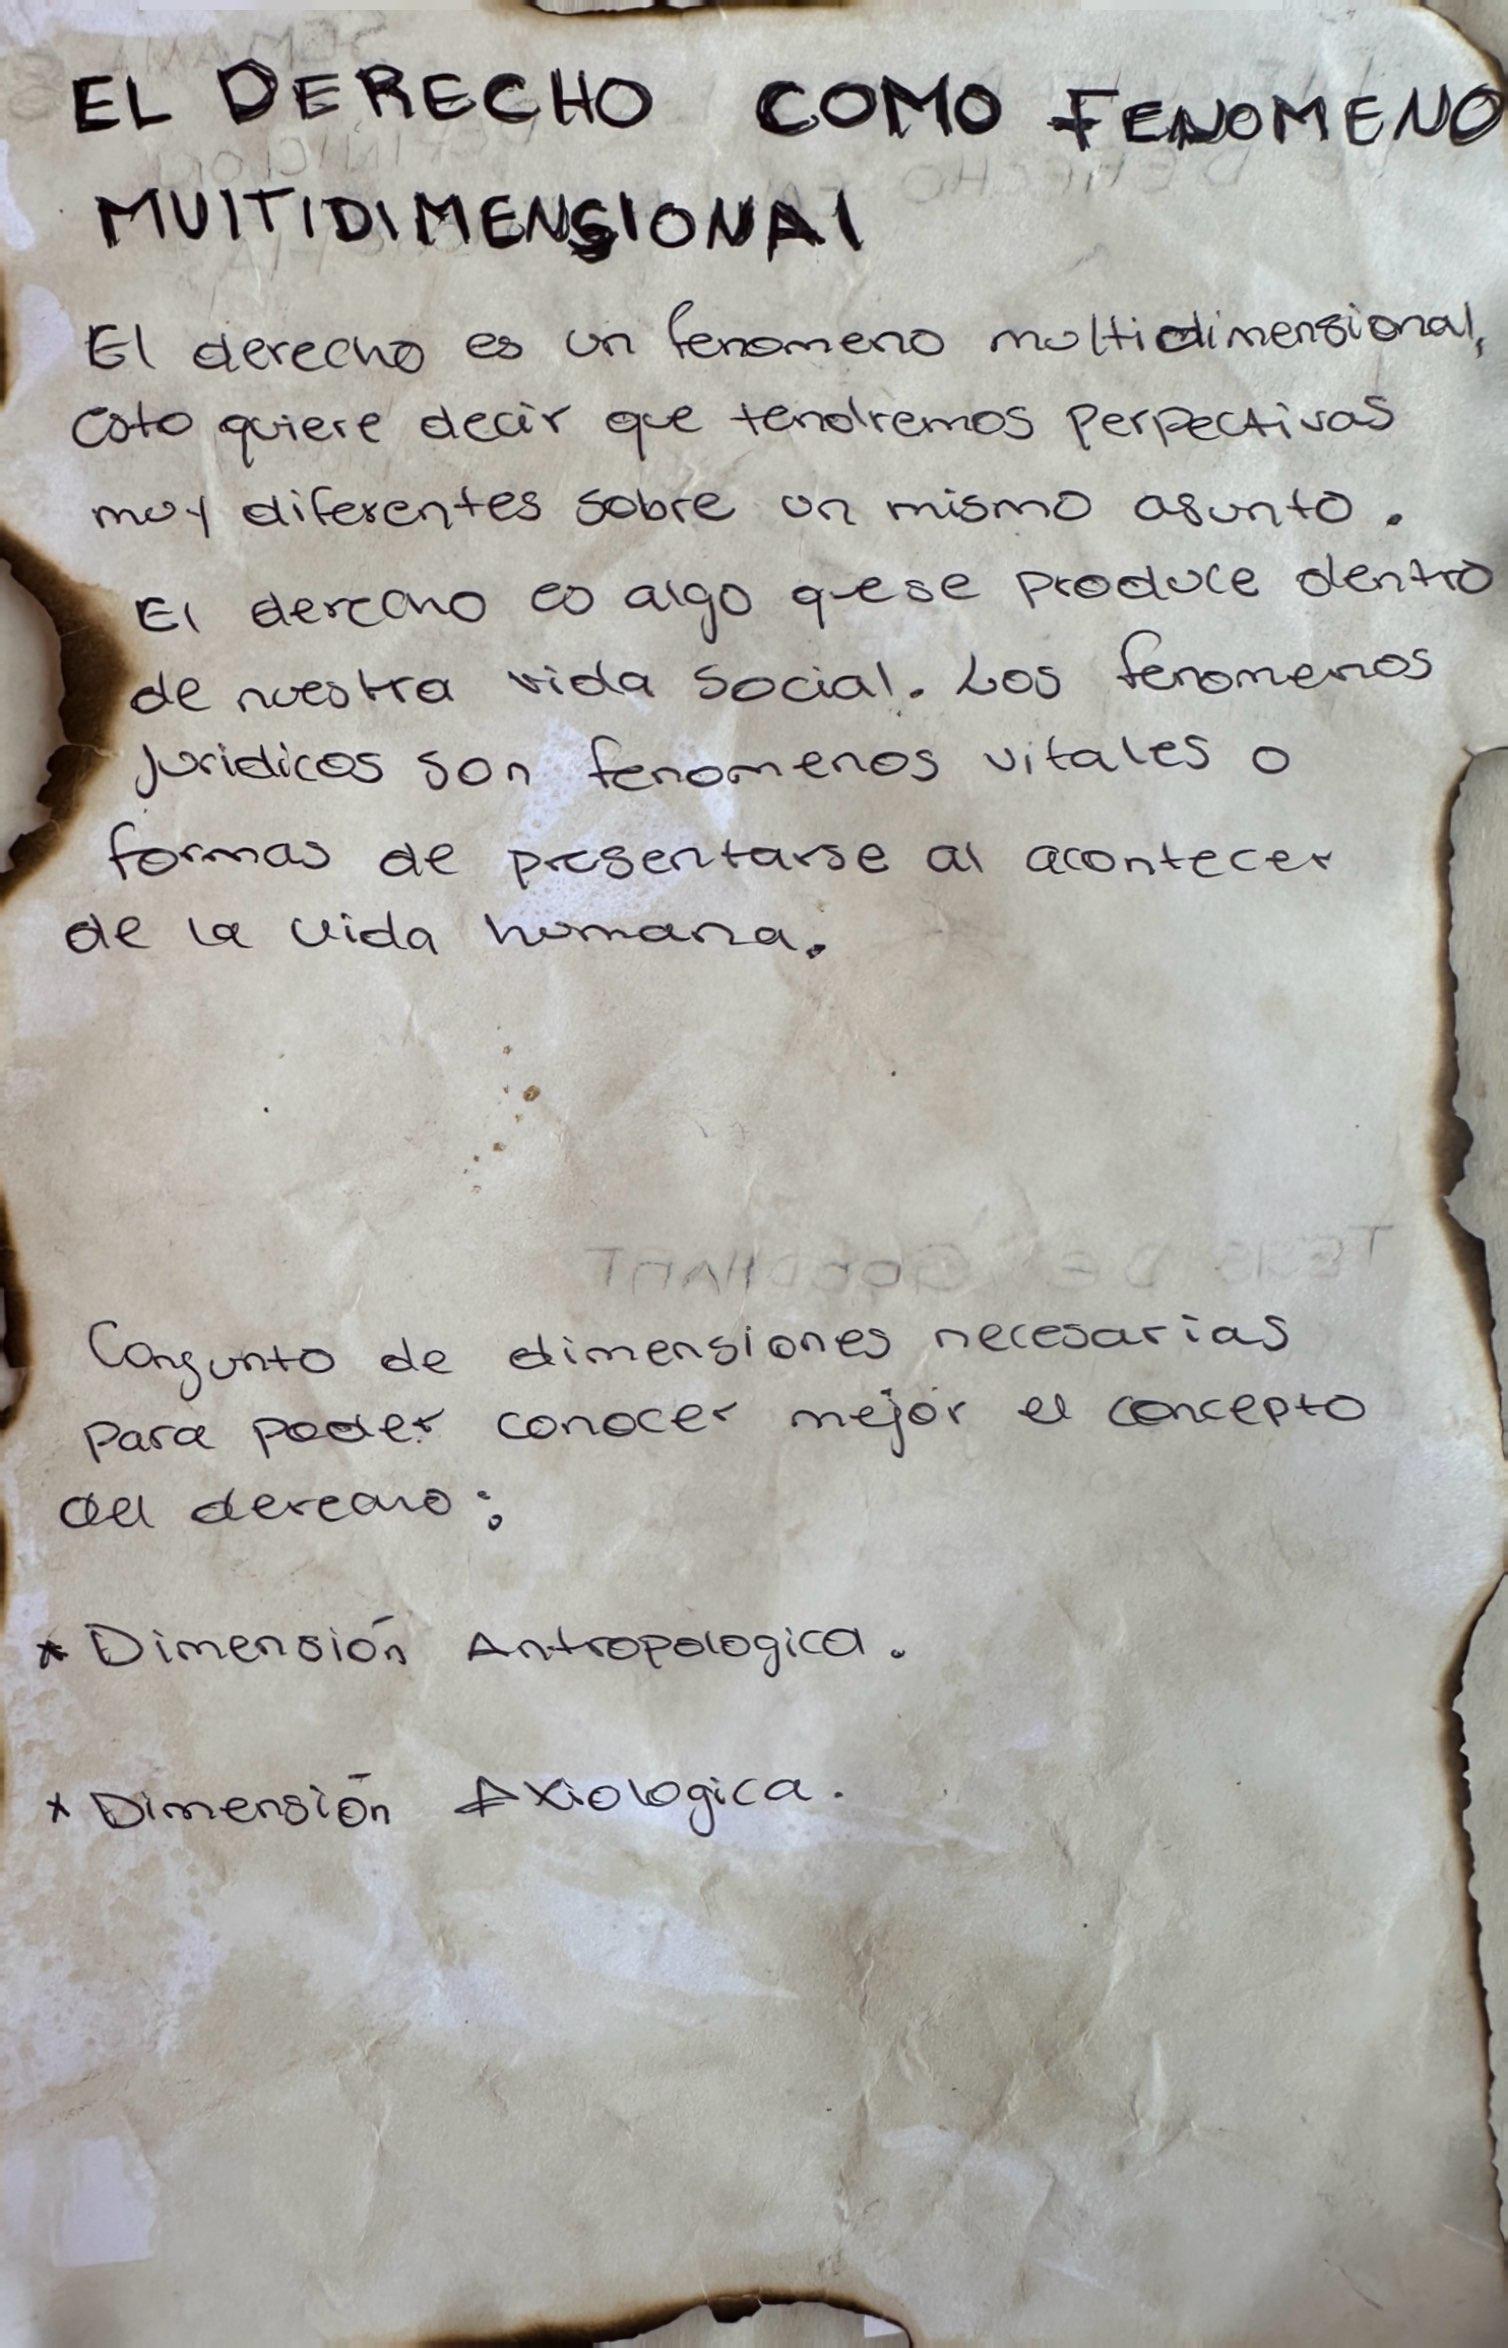 EL DERECHO COMO FENOMENO
MULTIDIMENSIONAL
El derecho es un fenomeno multidimensional,
esto quiere decir que tendremos perpectivas
muy diferentes sobre un mismo asunto.
El derecho es algo que se produce dentro
de nuestra vida social. Los fenomenos
juridicos son fenomenos vitales o
formas de presentarse al acontecer
de la vida humana.
TESIS DE
Conjunto de dimensiones necesarias
para poder conocer mejor el concepto
del derecho:
* Dimensión Antropologica.
* Dimensión Axiologica.